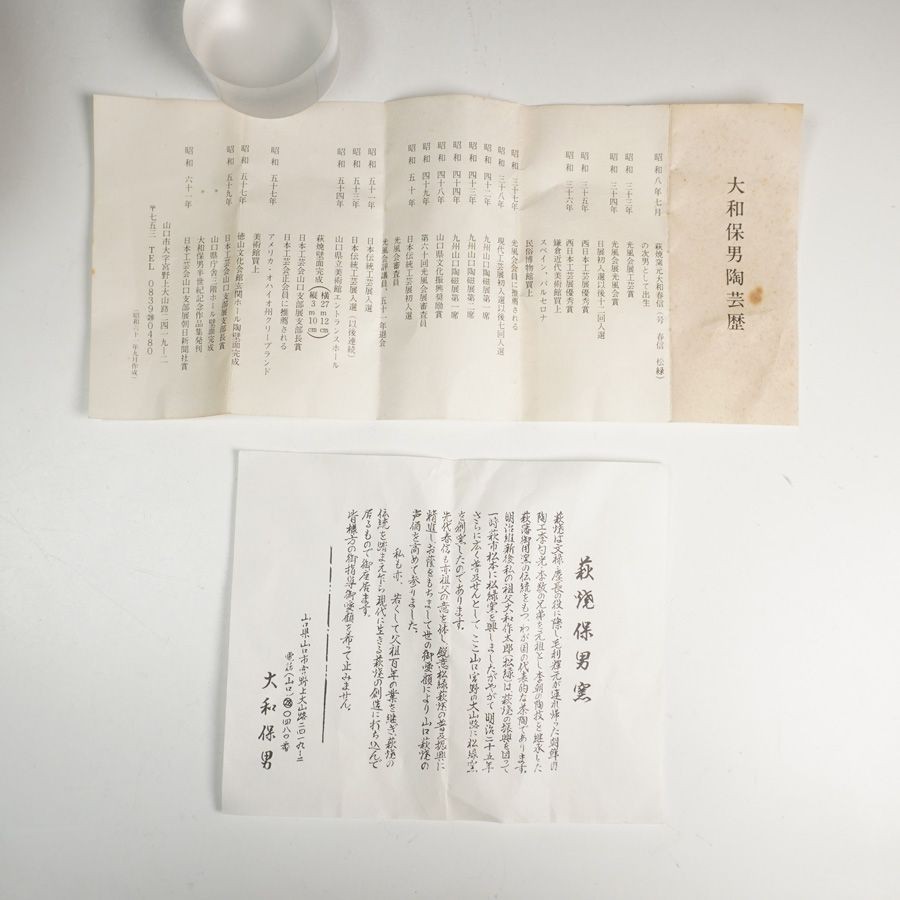 大和保男陶芸歴
昭和八年七月 萩焼窯元大和春信（号 春信 松緑）
の次男として出生
昭和 三十三年 光風会展工芸賞
昭和 三十四年 光風会展光風会賞
日展初入選以後十二回入選
昭和 三十五年 西日本工芸展優秀賞
昭和 三十六年 西日本工芸展優秀賞
鎌倉近代美術館買上
スペイン、バルセロナ
民俗博物館買上
昭和 三十七年 光風会会員に推薦される
昭和 三十八年 現代工芸展初入選以後七回入選
昭和 四十二年 九州山口陶磁展第一席
昭和 四十三年 九州山口陶磁展第二席
昭和 四十四年 九州山口陶磁展第一席
昭和 四十八年 山口県文化振興奨励賞
昭和 四十九年 第六十回光風会展審査員
昭和 五十年 日本伝統工芸展初入選
光風会審査員
光風会評議員、五十一年退会
昭和 五十一年 日本伝統工芸展入選
昭和 五十三年 日本伝統工芸展入選（以後連続）
昭和 五十四年 山口県立美術館エントランスホール
萩焼壁面完成（横27m12cm 縦3m10cm）
日本工芸会山口支部展支部長賞
日本工芸会正会員に推薦される
昭和 五十七年 アメリカ・オハイオ州クリーブランド
美術館買上
昭和 五十七年 徳山文化会館玄関ホール陶壁画完成
昭和 五十九年 日本工芸会山口支部展支部長賞
山口県庁舎三階ホール壁画完成
大和保男半世紀記念作品集発刊
昭和 六十一年 日本工芸会山口支部展朝日新聞社賞
山口市大字宮野上大山路二四一九ー二
〒七五三 TEL 0839㉘0480
（昭和六十一年九月作成）
萩焼保男窯
萩焼は文禄・慶長の役に際し毛利輝元が連れ帰った朝鮮の
陶工李勺光、李敬の兄弟を元祖とし李朝の陶技を継承した
萩藩御用窯の伝統をもつ、わが国の代表的な茶陶であります。
明治維新後私の祖父大和作太郎（松緑）は、萩焼の振興を図って
一時萩市松本に松緑窯を興しましたがやがて明治二十五年
さらに広く普及せんとして、ここ山口宮野の大山路に松緑窯
を創業したのであります。
先代春信も亦祖父の意を体し、鋭意松緑萩焼の普及振興に
精進しお蔭をもちまして世の御愛顧により山口萩焼の
声価を高めて参りました。
私も亦、若くして父祖百年の業を継ぎ、萩焼の
伝統を踏まえながら現代に生きる萩焼の創造に打ち込んで
居るもので御座居ます。
皆様方の御指導御愛顧を希って止みません。
山口県山口市宮野上大山路二四一九ー二
電話（山口）㉘〇四八〇番
大和保男